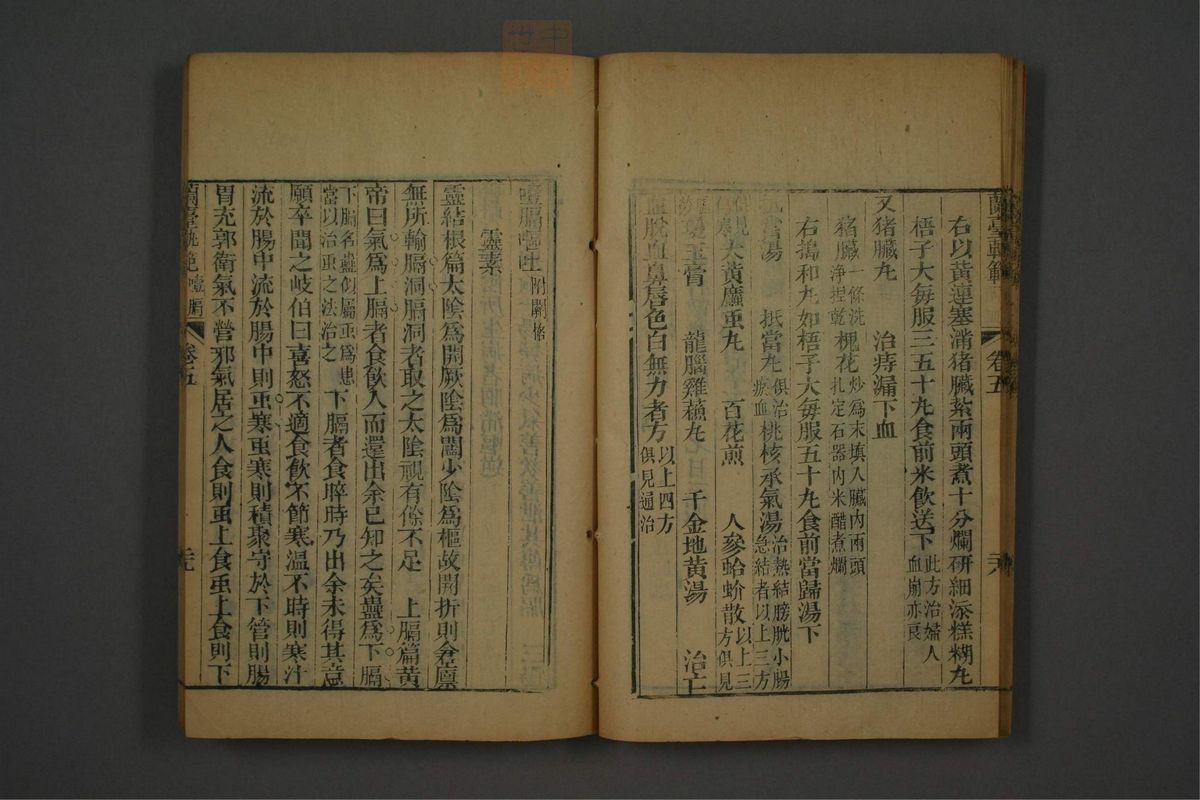 蘭臺軌範 卷五 六
右以黃連塞滿猪臟紮兩頭煮十分爛研細添糕糊丸
梧子大每服三五十丸食前米飲送下此方治婦人血崩亦良
又猪臟丸 治痔漏下血
猪臟一條洗淨捏乾 槐花炒爲末填入臟內兩頭扎定石器內米醋煮爛
右搗和丸如梧子大每服五十丸食前當歸湯下
當湯 抵當丸俱治瘀血 桃核承氣湯治熱結膀胱小腸急結者以上三方
俱見傷寒 大黃䗪虫丸 百花煎 人參蛤蚧散以上三方俱見
膏 龍腦雞蘓丸 千金地黃湯 治上
血脫血鼻唇色白無力者方以上四方俱見通治
噎膈嘔吐附關格
靈素
靈結根篇太陰爲開厥陰爲闔少陰爲樞故開折則倉廩
無所輸膈洞膈洞者取之太陰視有餘不足 上膈篇黃
帝曰氣爲上膈者食飲入而還出余已知之矣蟲爲下膈
下膈名蟲似屬虫爲患當以治虫之法治之 下膈者食晬時乃出余未得其意
願卒聞之岐伯曰喜怒不適食飲不節寒溫不時則寒汁
流於腸中流於腸中則虫寒虫寒則積聚守於下管則腸
胃充郭衛氣不營邪氣居之人食則虫上食虫上食則下
蘭臺軌範 噎膈 卷五